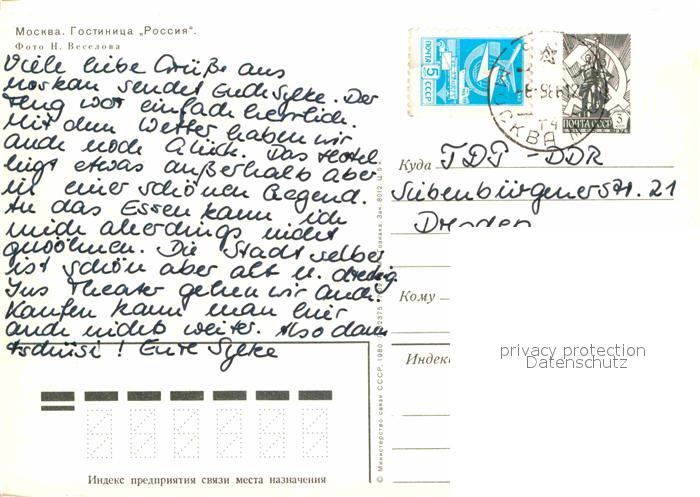 Москва. Гостиница „Россия".
Фото Н. Веселова
Viele liebe Grüße aus
Moskau sendet Euch Sylke. Der
Flug war einfach herrlich.
Mit dem Wetter haben wir
auch noch Glück. Das Hotel
liegt etwas außerhalb aber
in einer schönen Gegend.
An das Essen kann ich
mich allerdings nicht
gewöhnen. Die Stadt selber
ist schön aber alt u. dreckig.
Ins Theater gehen wir auch.
Kaufen kann man hier
auch nichts weiter. Also dann
tschüsi! Eure Sylke
ПОЧТА
5 СССР
МОСКВА
ПОЧТА СССР 3
Куда ГДР - DDR
Siebenbürgenerstr. 21
Dresden
Кому
Индекс
privacy protection
Datenschutz
© Министерство связи СССР, 1980
Зак. 8012. Ц. 5 к.
Индекс предприятия связи места назначения